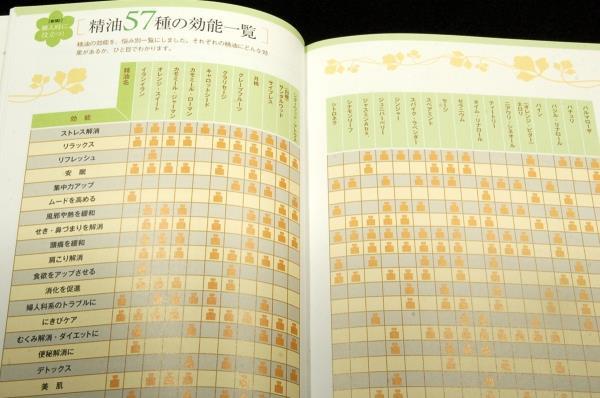 婦人科に
役立つ!
精油57種の効能一覧
精油の効能を、悩み別一覧にしました。それぞれの精油にどんな効
果があるか、ひと目でわかります。
精油名
効能
イランイラン
オレンジ・スイート
カモミール・ジャーマン
カモミール・ローマン
キャロットシード
クラリセージ
グレープフルーツ
月桃
サイプレス
シトロネラ
シナモンリーフ
ジャスミンAbs.
ジュニパーベリー
ジンジャー
スパイク・ラベンダー
スペアミント
セージ
ゼラニウム
タイム・リナロール
ティートリー
パイン
パチュリ
パルマローザ
ストレス解消
リラックス
リフレッシュ
安眠
集中力アップ
ムードを高める
風邪や熱を緩和
せき・鼻づまりを解消
頭痛を緩和
肩こり解消
食欲をアップさせる
消化を促進
婦人科系のトラブルに
にきびケア
むくみ解消・ダイエットに
便秘解消に
デトックス
美肌